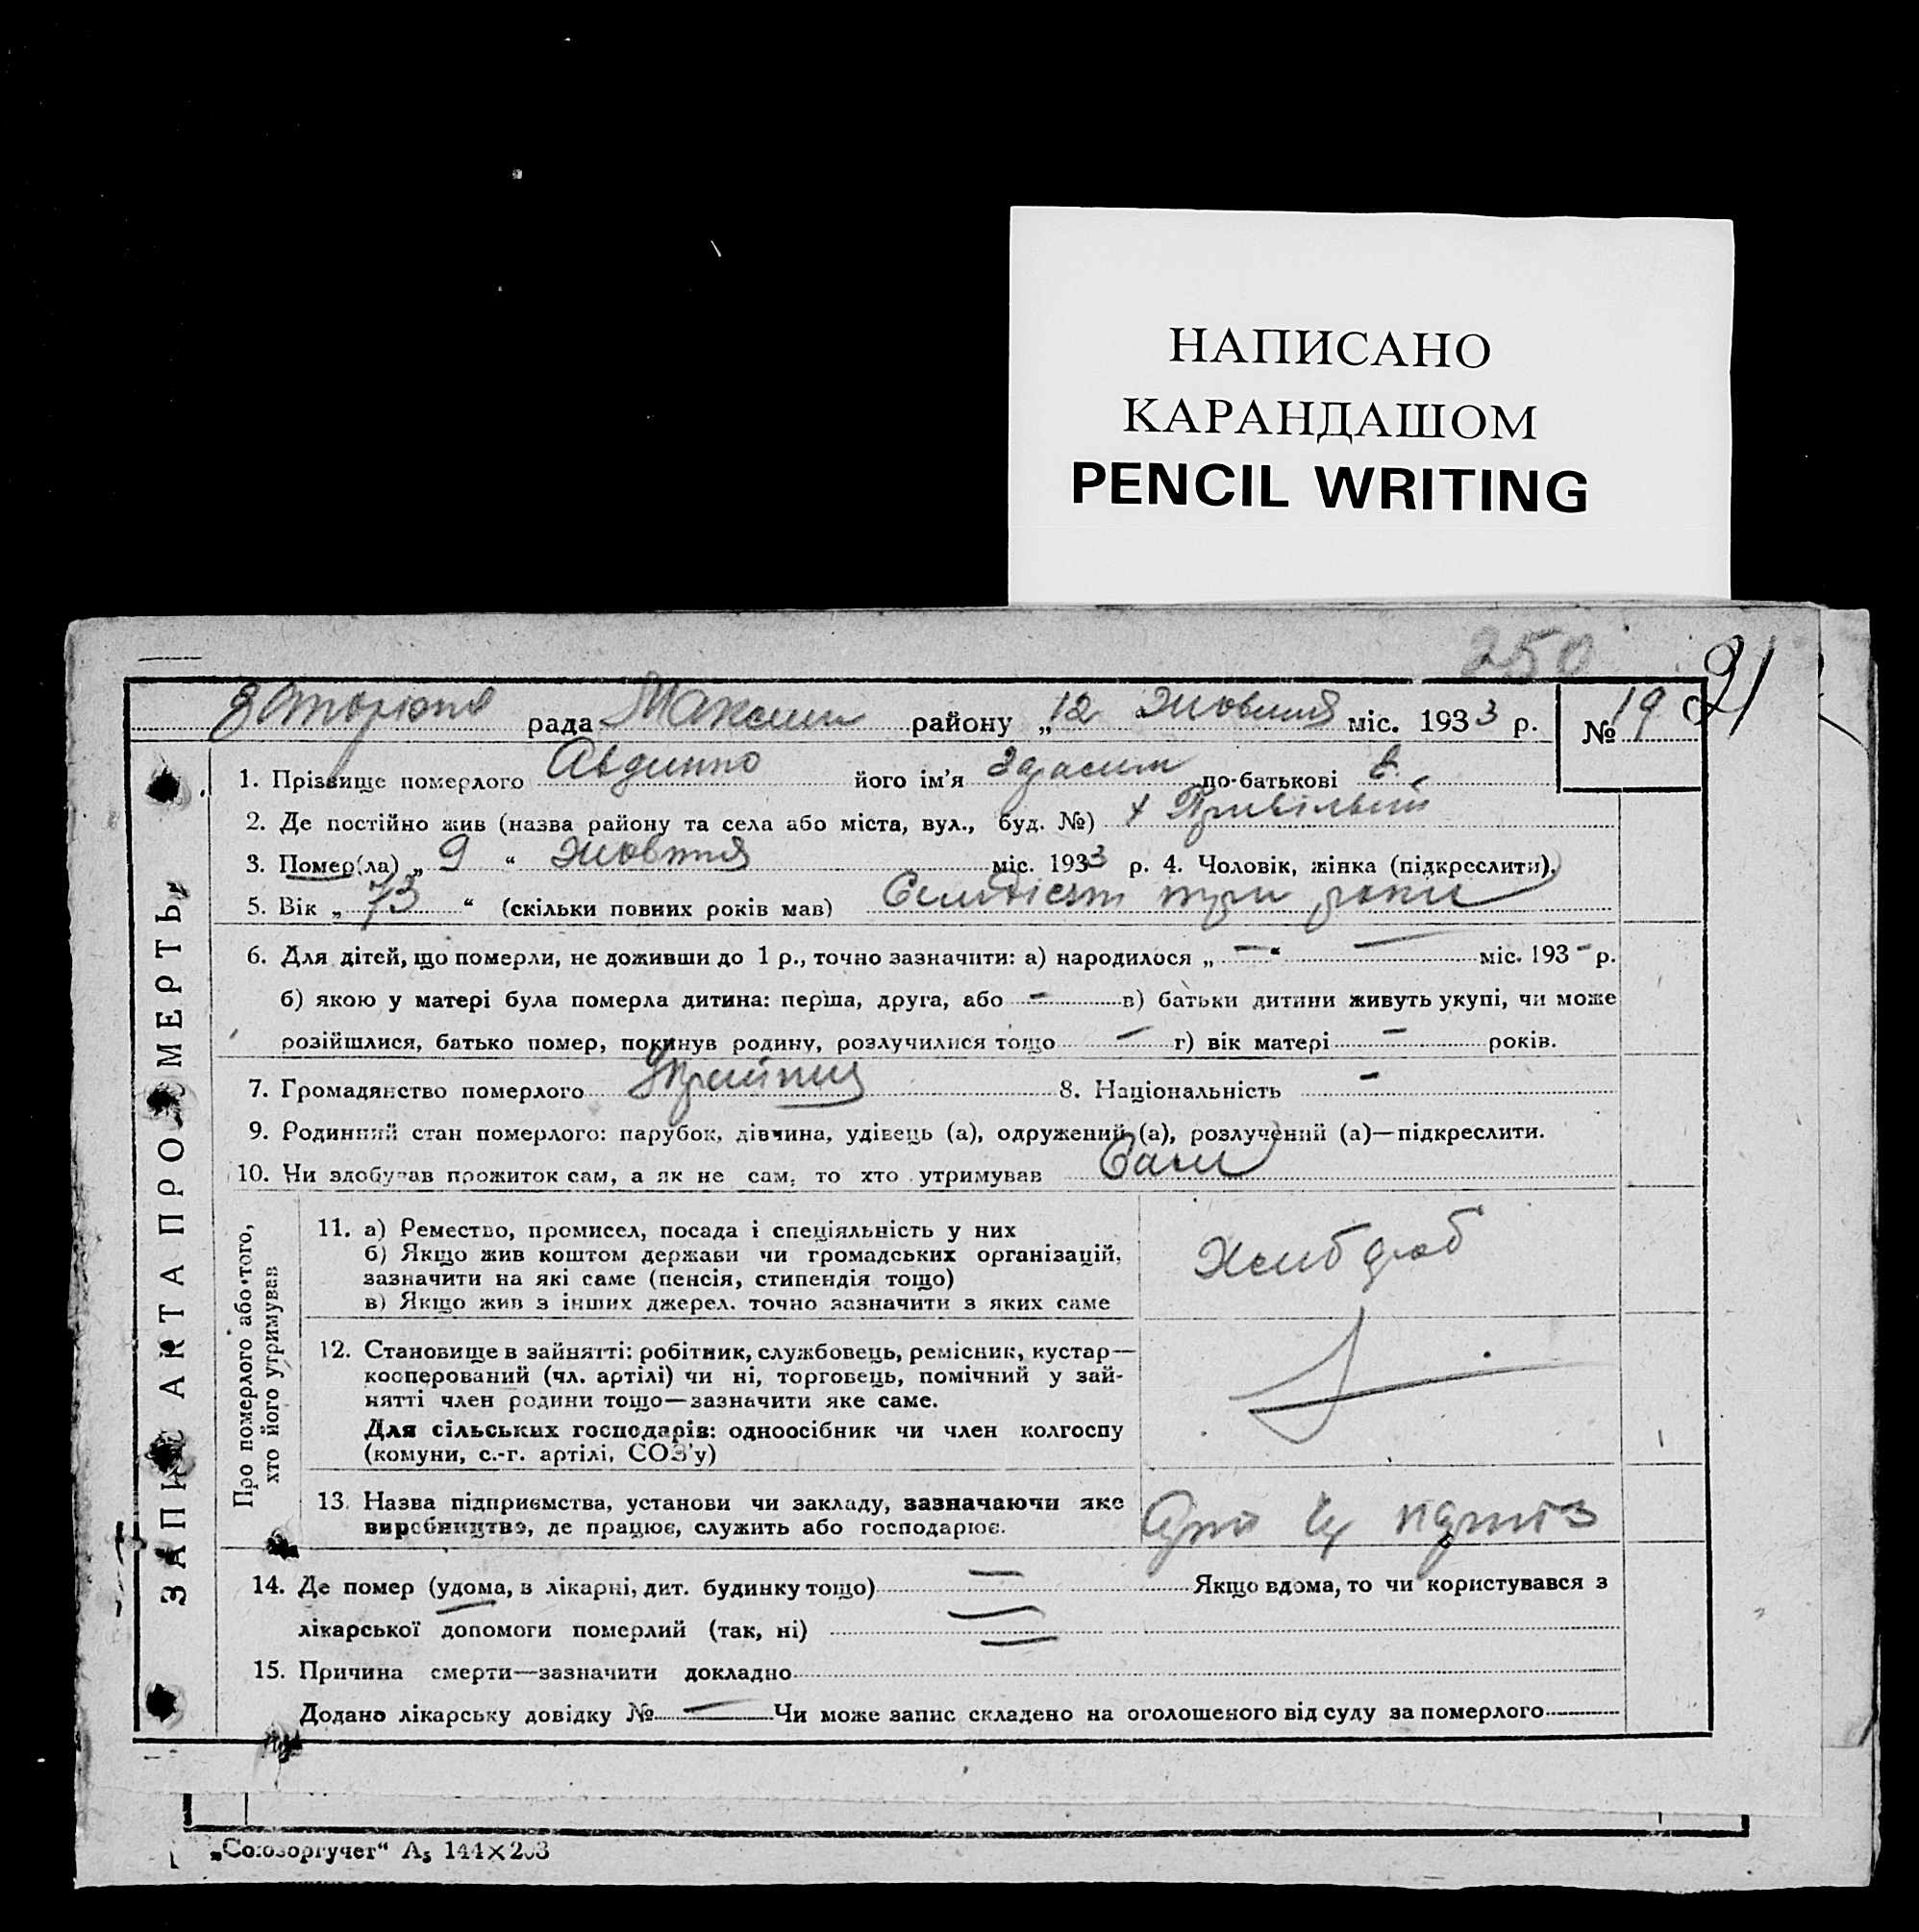 НАПИСАНО
КАРАНДАШОМ
PENCIL WRITING
250
91
рада Максим району „12 Жовтня міс. 1933 р. № 19
1. Прізвище померлого його ім'я по-батькові
2. Де постійно жив (назва району та села або міста, вул., буд. №) х Привільний
3. Помер(ла) „ 9 “ Жовтня міс. 1933 р. 4. Чоловік, жінка (підкреслити).
5. Вік „ 73 “ (скільки повних років мав) Семдісят три роки
6. Для дітей, що померли, не доживши до 1 р., точно зазначити: а) народилося „ — “ — міс. 193 – р.
б) якою у матері була померла дитина: перша, друга, або – в) батьки дитини живуть укупі, чи може
розійшлися, батько помер, покинув родину, розлучилися тощо – г) вік матері – років.
7. Громадянство померлого 8. Національність –
9. Родинний стан померлого: парубок, дівчина, удівець (а), одружений (а), розлучений (а)—підкреслити.
10. Чи здобував прожиток сам, а як не сам, то хто утримував Сам
ЗАПИС АКТА ПРО СМЕРТЬ
Про померлого або того,
хто його утримував
11. а) Ремество, промисел, посада і спеціяльність у них
б) Якщо жив коштом держави чи громадських організацій,
зазначити на які саме (пенсія, стипендія тощо)
в) Якщо жив з інших джерел, точно зазначити з яких саме
12. Становище в зайнятті: робітник, службовець, ремісник, кустар—
кооперований (чл. артілі) чи ні, торговець, помічний у зай-
нятті член родини тощо—зазначити яке саме.
Для сільських господарів: одноосібник чи член колгоспу
(комуни, с.-г. артілі, СОЗ'у)
13. Назва підприємства, установи чи закладу, зазначаючи яке
виробництво, де працює, служить або господарює.
14. Де помер (удома, в лікарні, дит. будинку тощо) — Якщо вдома, то чи користувався з
лікарської допомоги померлий (так, ні) —
15. Причина смерти—зазначити докладно
Додано лікарську довідку № — Чи може запис складено на оголошеного від суду за померлого
„Союзоргучет“ А5 144×203